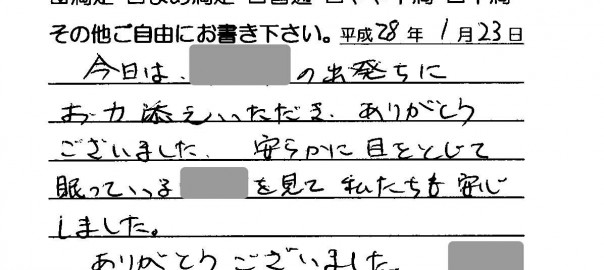 その他ご自由にお書き下さい。平成28年1月23日
今日は、の出発ちに
お力添えいただき、ありがとう
ございました。安らかに目をとじて
眠っている を見て私たちも安心
しました。
ありがとうございました。